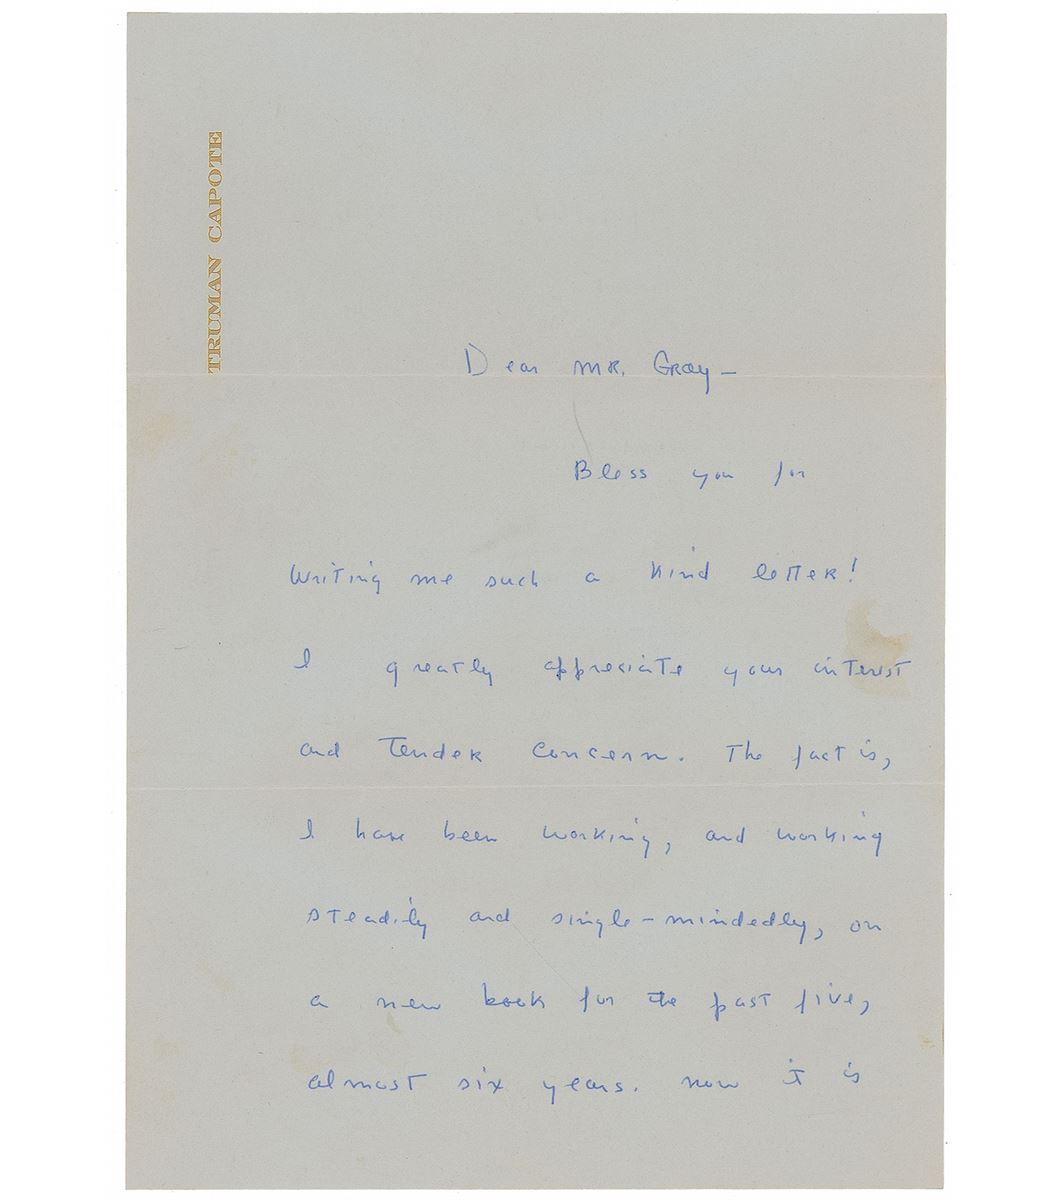 TRUMAN CAPOTE
Dear Mr. Gray—
Bless you for
writing me such a kind letter!
I greatly appreciate your interest
and tender concern. The fact is,
I have been working, and working
steadily and single-mindedly, on
a new book for the past five,
almost six years. now it is